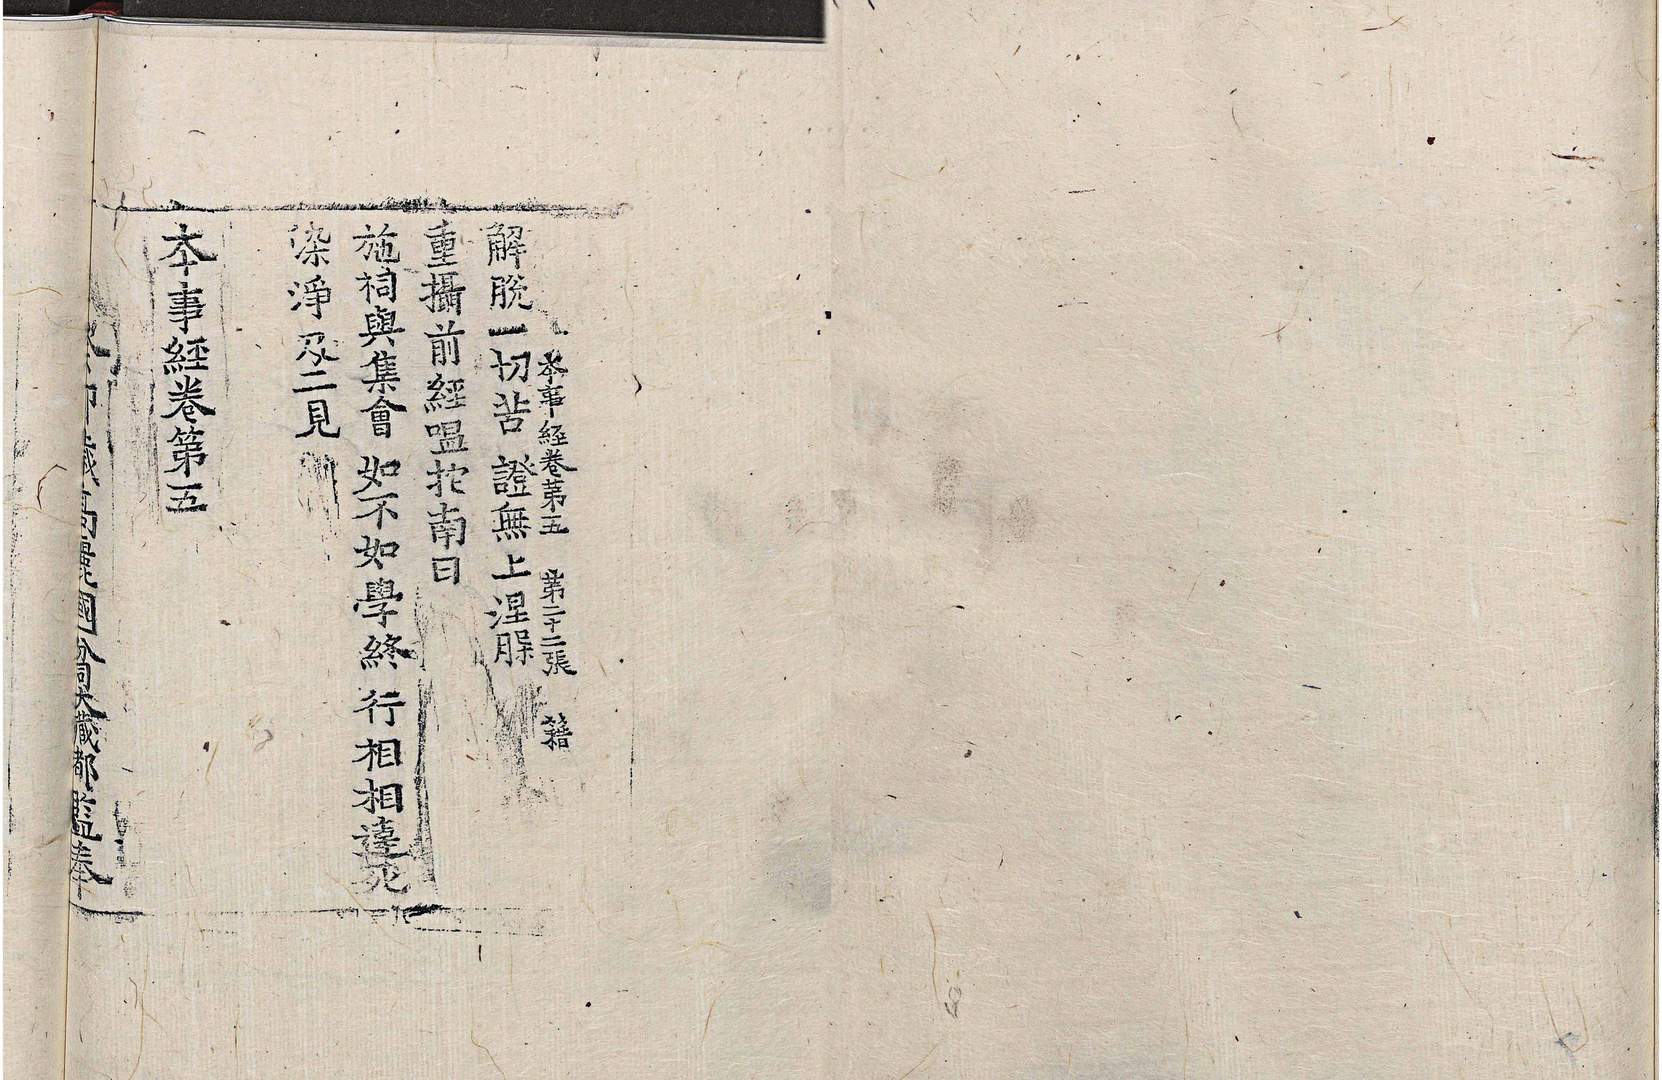 本事経卷第五 第二十二張 籍
解脫一切苦 證無上涅䏶
重攝前經嗢拕南曰
施祠與集會 如不如學終 行相相違死
染淨及二見
本事經卷第五
卯歲高麗國分司大藏都監奉